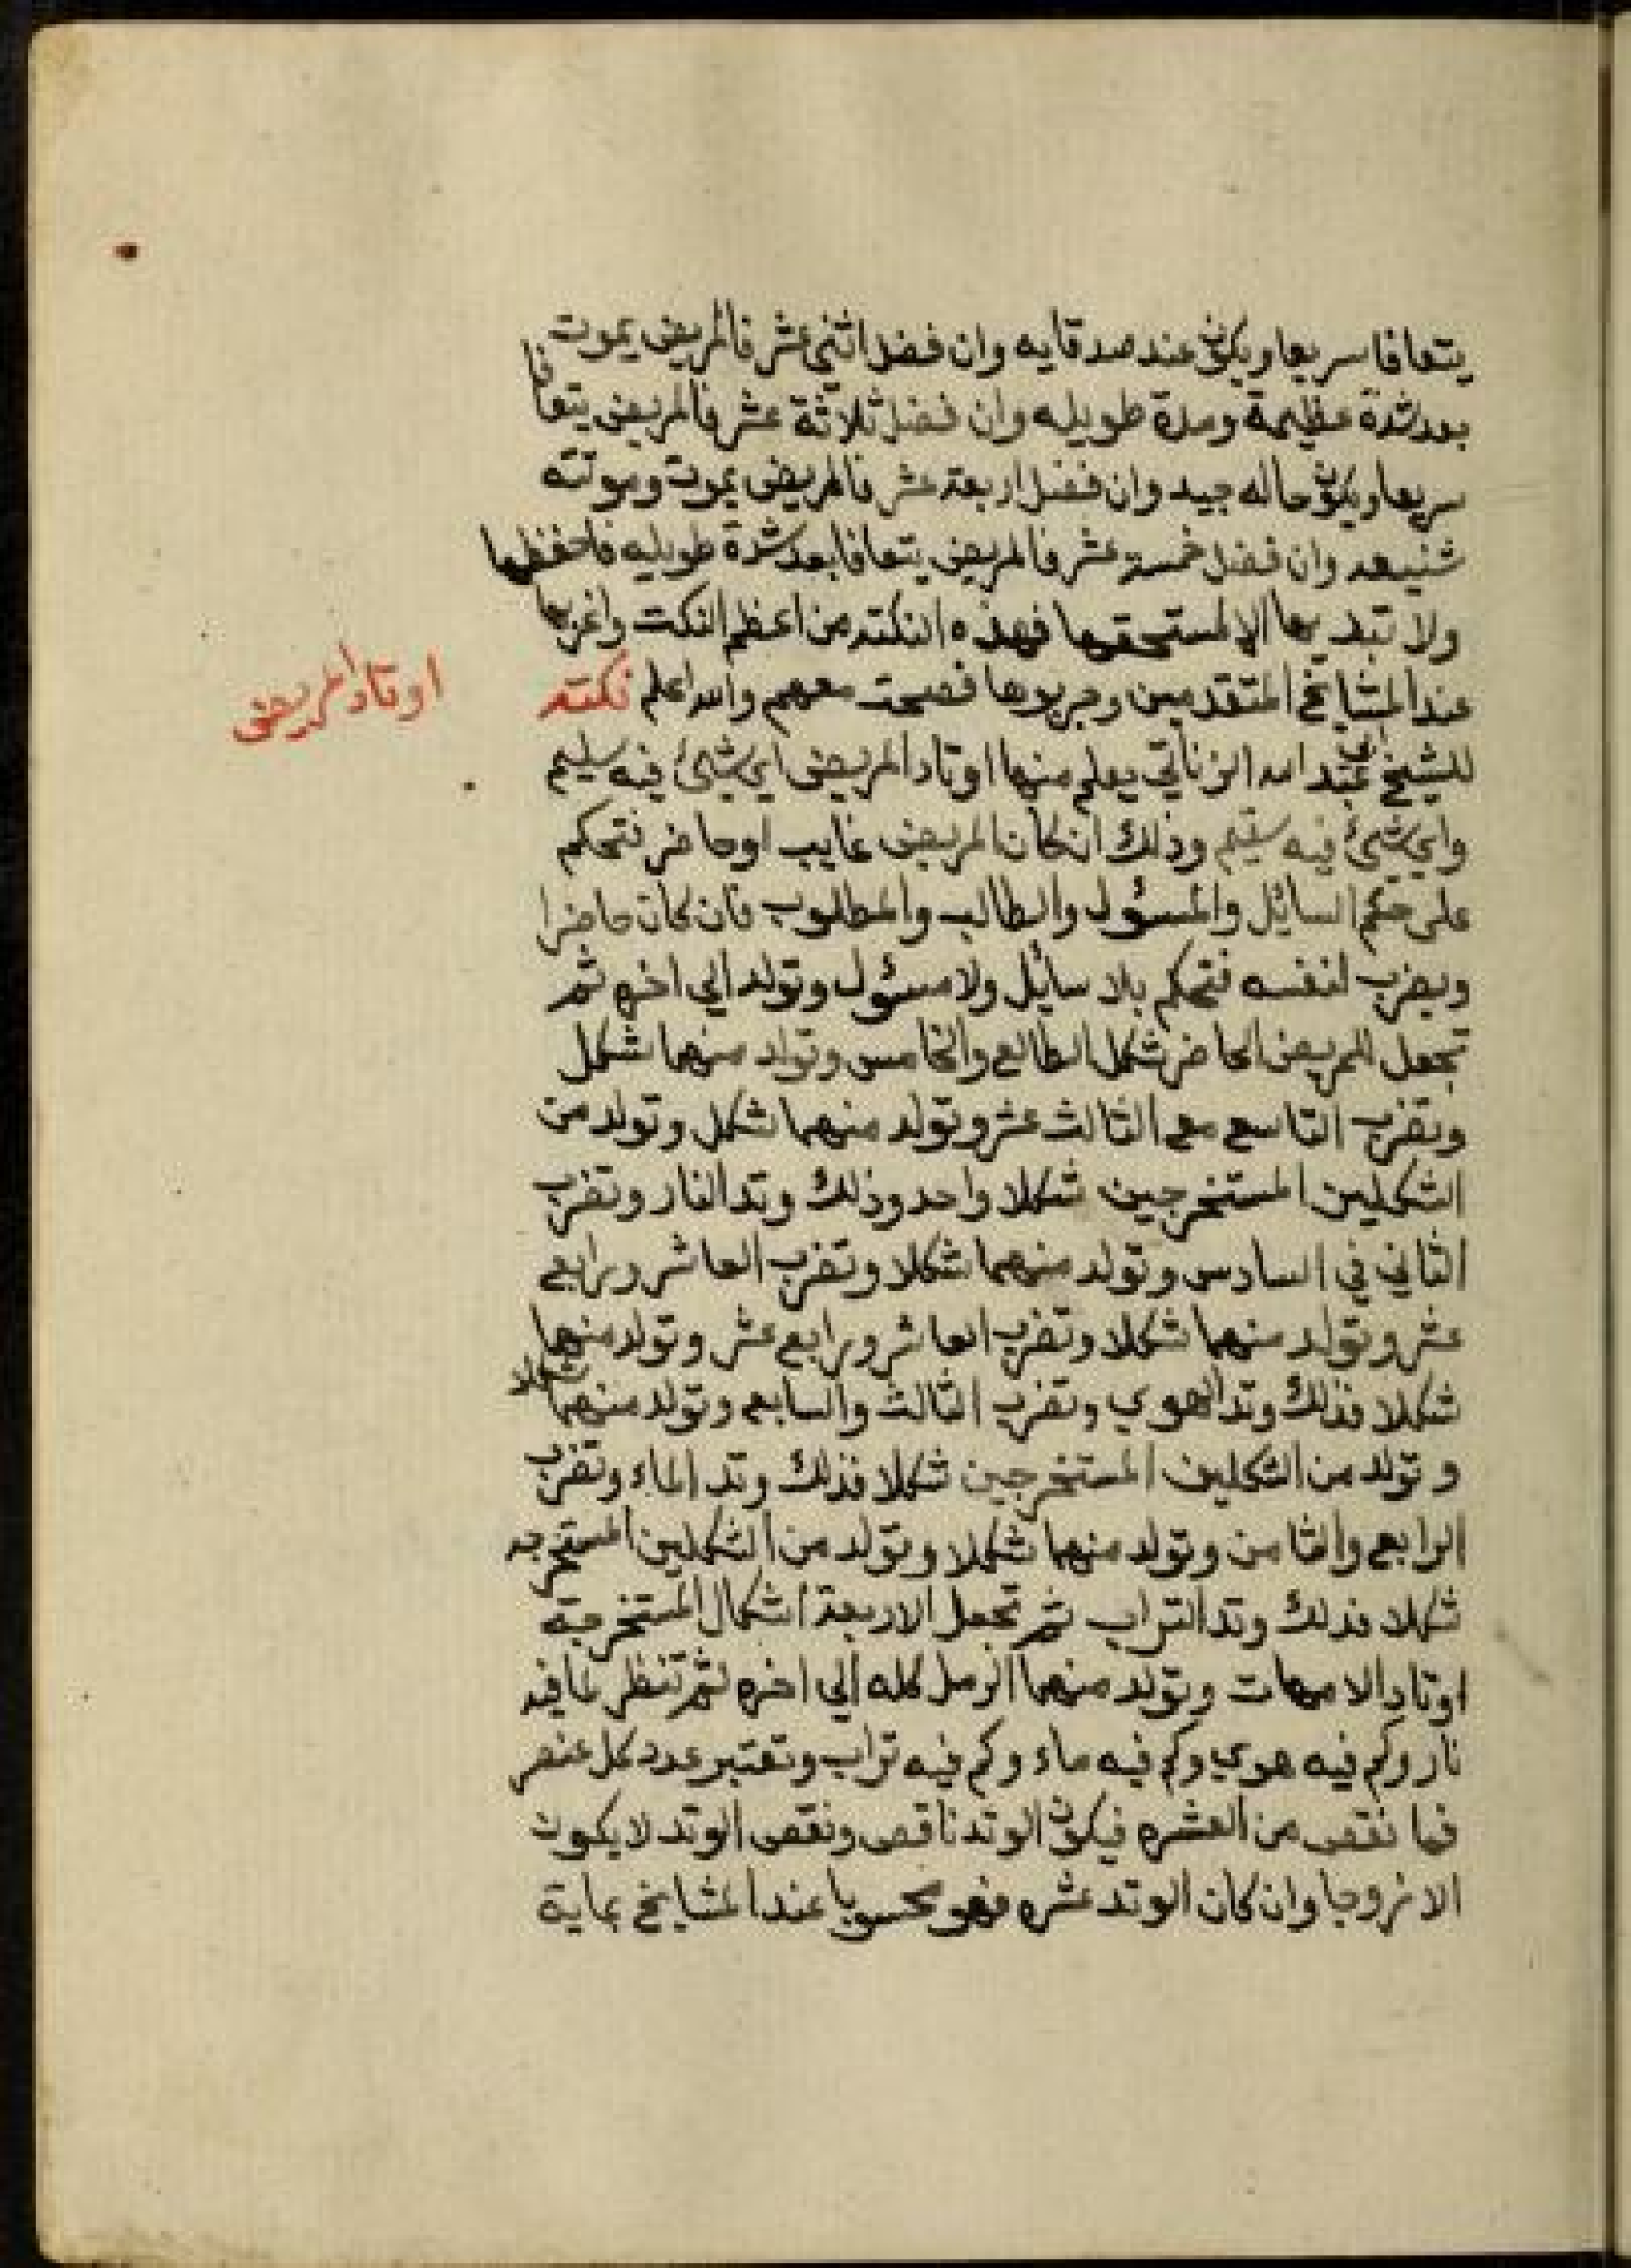 يتعافا سريعا ويكون عند صدقايه وان فضل اثني عشر فالمريض يموت
بعد شدة عظيمة ومدة طويله وان فضل ثلاثة عشر فالمريض يتعافا
سريعا ويكون حاله جيد وان فضل اربعة عشر فالمريض يموت وموتته
شنيعه وان فضل خمسة عشر فالمريض يتعافا بعد شدة طويله فاحفظها
ولا تبديها الا لمستحقها فهذه النكته من اعظم النكت واغربها
عند المشايخ المتقدمين وجربوها فصحت معهم والله اعلم نكته
اوتاد المريض
للشيخ ابي عبد الله الزناتي يعلم منها اوتاد المريض اي شيئ فيه سليم
واي شيئ فيه سقيم وذلك ان كان المريض غايب او حاضر فتحكم
على حكم السائل والمسئول والطالب والمطلوب فان كان حاضرا
ويضرب لنفسه فتحكم بلا سائل ولا مسئول وتولد الي اخره ثم
تجعل للمريض الحاضر شكل الطالع والخامس وتولد منهما شكل
وتضرب التاسع مع الثالث عشر وتولد منهما شكل وتولد من
الشكلين المستخرجين شكلا واحد وذلك وتد النار وتضرب
الثاني في السادس وتولد منهما شكلا وتضرب العاشر ورابع
عشر وتولد منهما شكلا وتضرب العاشر ورابع عشر وتولد منهما
شكلا فذلك وتد الهوي وتضرب الثالث والسابع وتولد منهما شكلا
وتولد من الشكلين المستخرجين شكلا فذلك وتد الماء وتضرب
الرابع والثامن وتولد منهما شكلا وتولد من الشكلين المستخرجه
شكلا فذلك وتد التراب ثم تجعل الاربعة اشكال المستخرجته
اوتاد الامهات وتولد منهما الرمل كله الي اخره ثم تنظر لما فيه
نار وكم فيه هوي وكم فيه ماء وكم فيه تراب وتعتبر عدد كل عنصر
فما نقص من العشره فيكون الوتد ناقص ونقص الوتد لا يكون
الا زوجا وان كان الوتد عشره فهو محسوبا عند المشايخ بماية